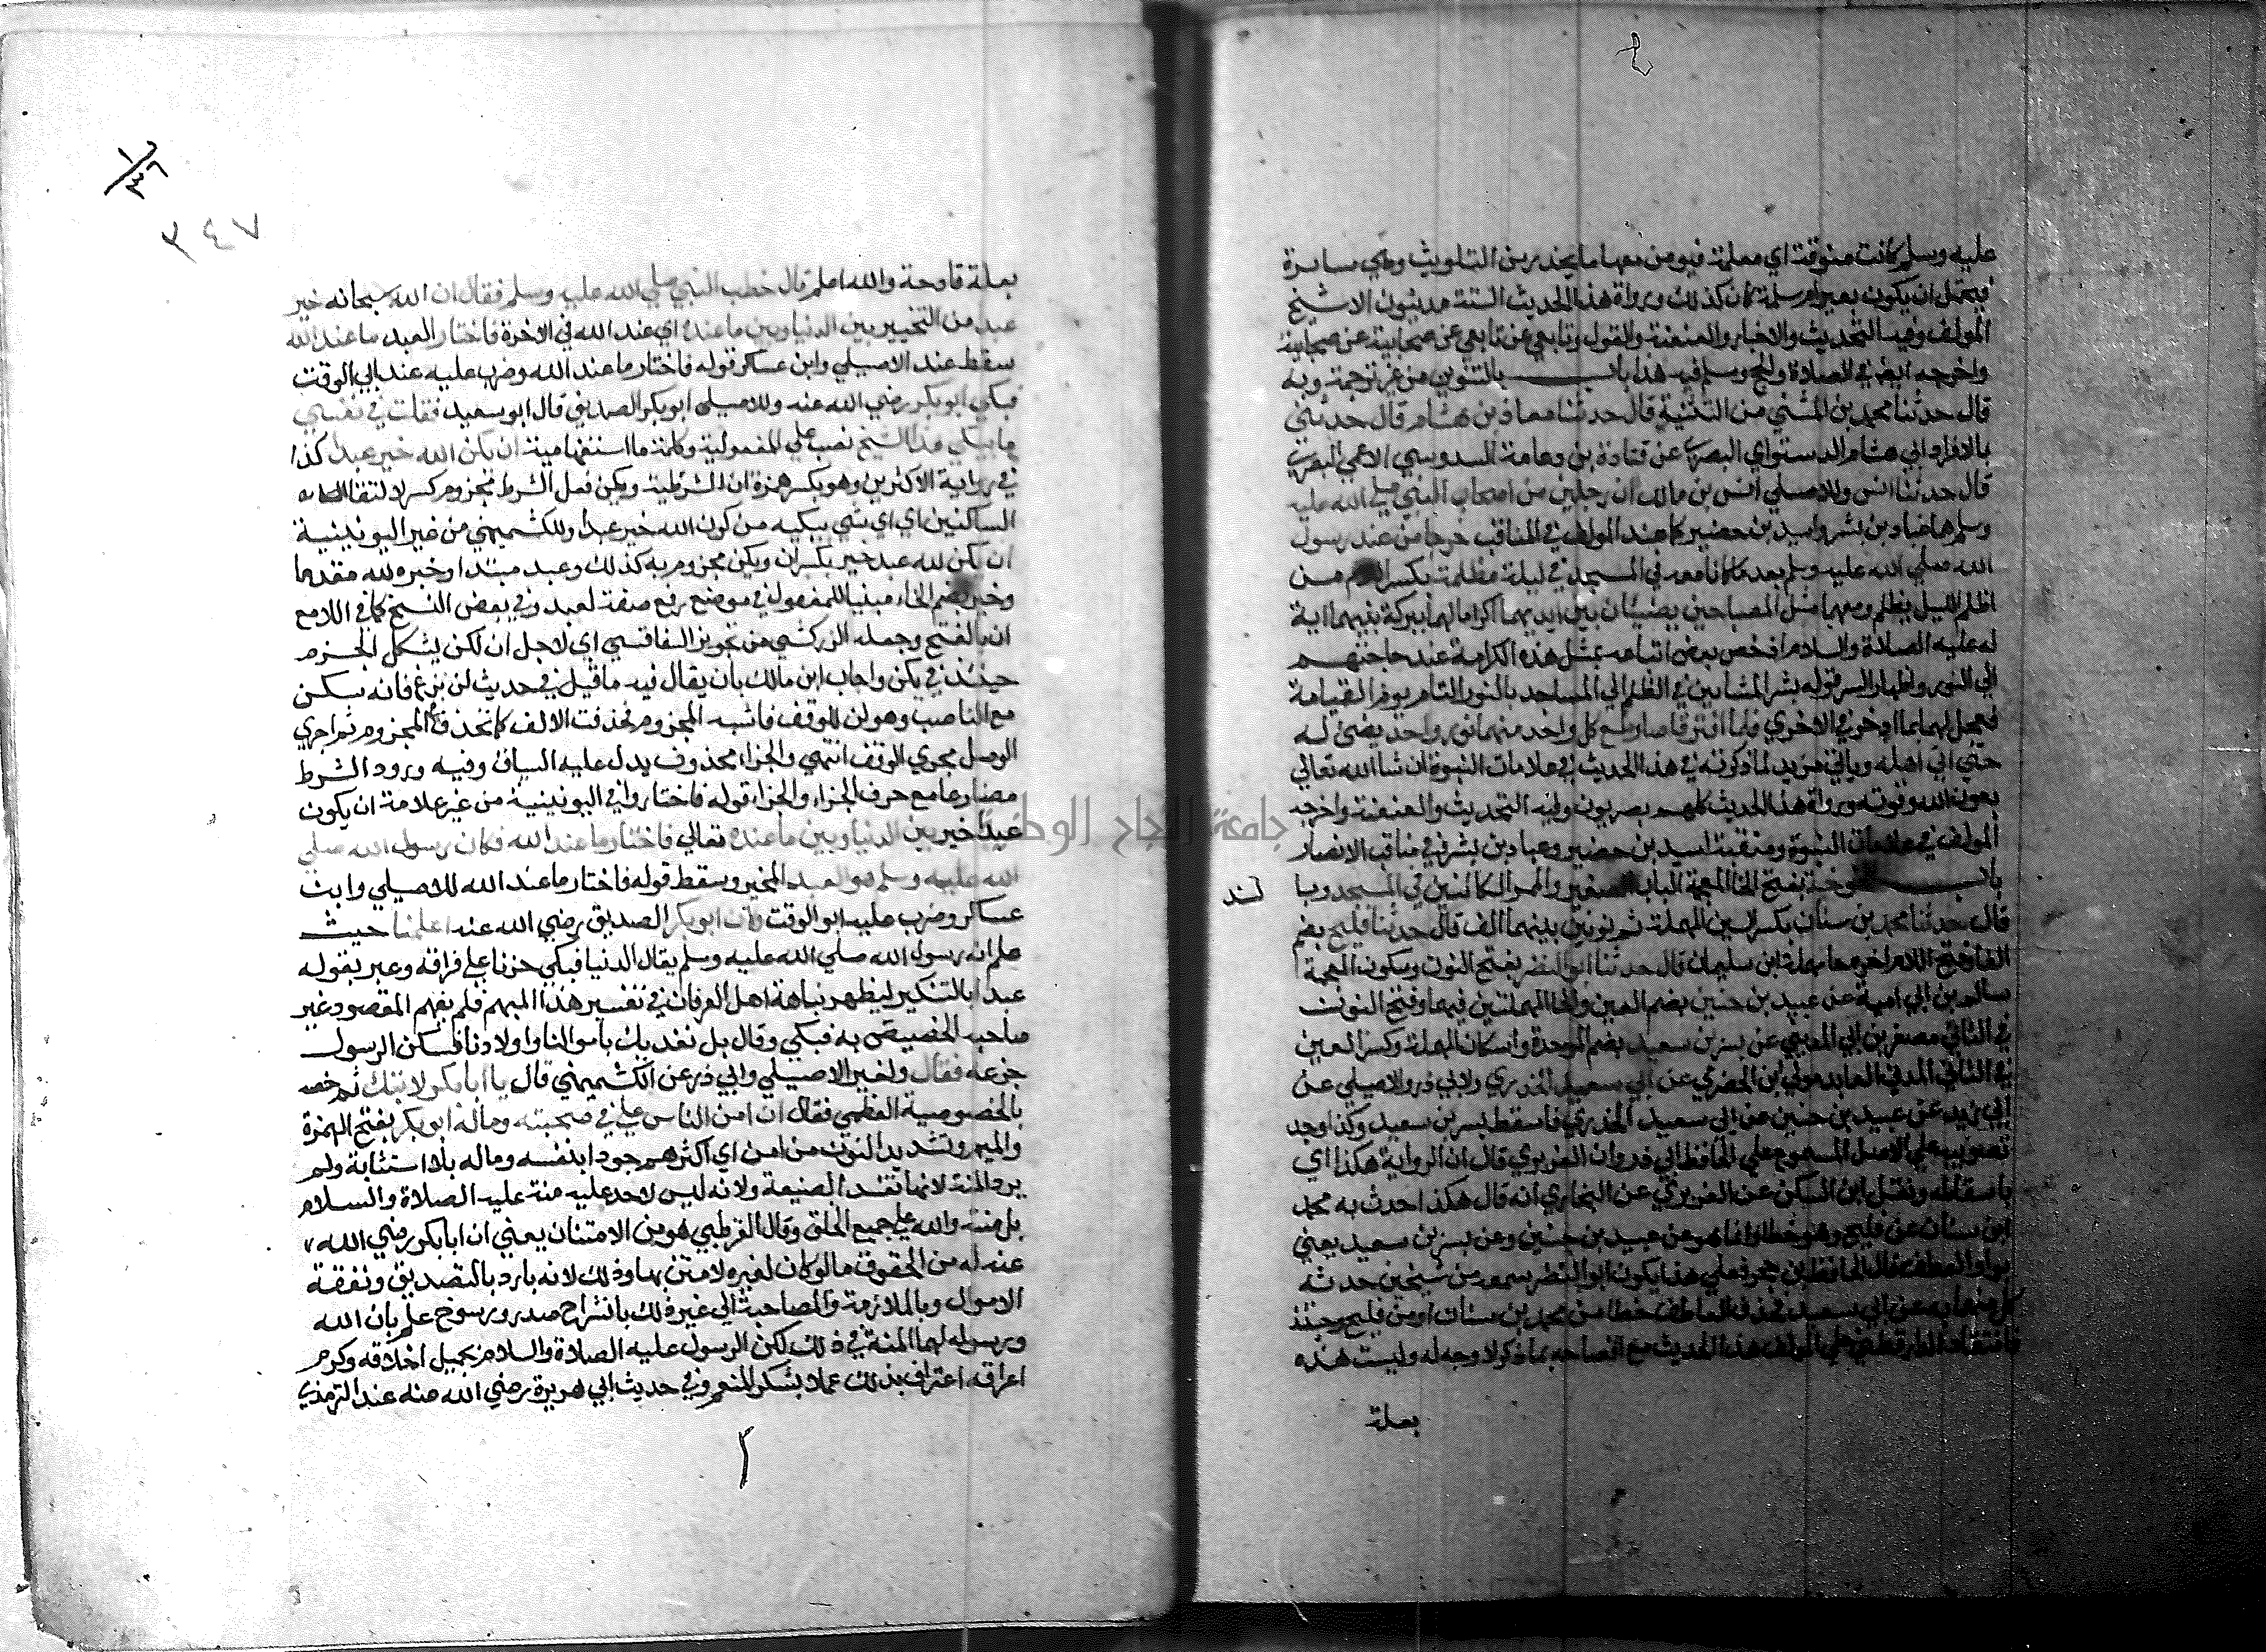 عليه وسلم كانت منوقة اي معلمة فيومن معها ما يحذر من التلويث وهي سايرة
فيحتمل ان يكون بعير ام سلمة كان كذلك ورواة هذا الحديث الستة مدنيون الا شيخ
المولف وفيه التحديث والاخبار والعنعنة والقول وتابعي عن تابعي عن صحابية عن صحابية
واخرجه ايضا في الصلاة والحج ومسلم فيه هذا باب بالتنوين من غير ترجمة وبه
قال حدثنا محمد بن المثني من التثنية قال حدثنا معاذ بن هشام قال حدثني
بالافراد ابي هشام الدستواي البصري عن قتادة بن دعامة السدوسي الاعمي البصري
قال حدثنا انس وللاصيلي انس بن مالك ان رجلين من اصحاب النبي صلي الله عليه
وسلم هما عباد بن بشر واسيد بن حضير كما عند المولف في المناقب خرجا من عند رسول
الله صلي الله عليه وسلم بعد ما كانا معه في المسجد في ليلة مظلمة بكسر اللام من
اظلم الليل يظلم ومعهما مثل المصباحين يضيئان بين ايديهما اكراما لهما ببركة نبيهما اية
له عليه الصلاة والسلام اذ خص بعض اتباعه بمثل هذه الكرامة عند حاجتهم
الي النور واظهار السر قوله بشر المشايين في الظلم الي المساجد بالنور التام يوم القيامة
فعجل لهما مما ادخر في الاخري فلما افترقا صار مع كل واحد منهما نور واحد يضئ له
حتي اتي اهله وياتي مزيد لما ذكرته في هذا الحديث في علامات النبوة ان شا الله تعالي
بعون الله وقوته ورواة هذا الحديث كلهم بصريون وفيه التحديث والعنعنة واخرجه
المولف في علامات النبوة ومنقبة اسيد بن حضير وعباد بن بشر في مناقب الانصار
باب الخوخة بفتح الخا المعجمة الباب الصغير والممر الكائنين في المسجد وبا لسند
قال حدثنا محمد بن سنان بكسر السين المهملة ثم نونين بينهما الف قال حدثنا فليح بضم
الفا وفتح اللام اخره حا مهملة ابن سليمان قال حدثنا ابو النضر بفتح النون وسكون المعجمة
سالم بن ابي امية عن عبيد بن حنين بضم العين والحا المهملتين فيهما وفتح النون
في الثاني مصغرين ابي المديني عن بسر بن سعيد بضم الموحدة واسكان المهملة وكسر العين
في الثاني المدني العابد مولي ابن الحضرمي عن ابي سعيد الخدري ولابي ذر والاصيلي عن
ابي زيد عن عبيد بن حنين عن ابي سعيد الخدري فاسقط بسر بن سعيد وكذا وجد
تصويبه علي الاصل المسموع علي الحافظ ابي ذر وان الفربري قال ان الرواية هكذا اي
باسقاطه ونقل ابن السكن عن الفربري عن البخاري انه قال هكذا حدث به محمد
ابن سنان عن فليح وهو خطا وانما هو عن عبيد بن حنين وعن بسر بن سعيد يعني
بواو العطف قال الحافظ بن حجر فعلي هذا يكون ابو النضر سمعه من شيخين حدثه
كل منهما به عن ابي سعيد فحذف العاطف خطا من محمد بن سنان او من فليح وحينئذ
فانتقاد الدارقطني علي المولف هذا الحديث مع افصاحه بما ذكر لا وجه له وليست هذه
بعلة
٣٤٧
بعلة قادحة والله اعلم قال خطب النبي صلي الله عليه وسلم فقال ان الله سبحانه خير
عبدا من التخيير بين الدنيا وبين ما عنده اي عند الله في الاخرة فاختار العبد ما عند الله
سقط عند الاصيلي وابن عساكر قوله فاختار ما عند الله وضرب عليه عند ابي الوقت
فبكي ابو بكر رضي الله عنه وللاصيلي ابو بكر الصديق قال ابو سعيد فقلت في نفسي
ما يبكي هذا الشيخ نصب علي المفعولية وكلمة ما استفهامية ان يكن الله خير عبدا كذا
في رواية الاكثرين وهو بكسر همزة ان الشرطية ويكن فعل الشرط مجزوم كسر لالتقا
الساكنين اي اي شي يبكيه من كون الله خير عبدا وللكشميهني من غير اليونينية
ان يكن لله عبد خير بكسر ان ويكن مجزوم به كذلك وعبد مبتدا وخبره لله مقدما
وخير بضم الخاء مبنيا للمفعول في موضع رفع صفة لعبد وفي بعض النسخ كما في اللامع
ان بالفتح وجعله الزركشي من تجويز السفاقسي اي لاجل ان لكن يشكل الجزم
حينئذ في يكن واجاب ابن مالك بان يقال فيه ما قيل في حديث لن ترع فانه سكن
مع الناصب وهو لن للوقف فاشبه المجزوم فحذفت الالف كما تحذف في المجزوم ثم اجري
الوصل مجري الوقف انتهي والجزاء محذوف يدل عليه السياق وفيه ورود الشرط
مضارعا مع حرف الجزاء والجزاء قوله فاختار وفي اليونينية من غير علامة ان يكون
عبدا خير بين الدنيا وبين ما عنده تعالي فاختار ما عند الله فكان رسول الله صلي
الله عليه وسلم هو العبد المخير وسقط قوله فاختار ما عند الله للاصيلي وابن
عساكر وضرب عليه ابو الوقت وكان ابو بكر الصديق رضي الله عنه اعلمنا حيث
علم انه رسول الله صلي الله عليه وسلم يقال الدنيا فبكي حزنا علي فراقه وعبر بقوله
عبدا بالتنكير ليظهر نباهة اهل العرفان في تفسير هذا المبهم فلم يفهم المقصود غير
صاحبه الخصيص به فبكي وقال بل نفديك باموالنا واولادنا فسكن الرسول
جزعه فقال ولغير الاصيلي وابي ذر عن الكشميهني قال يا ابا بكر لا تبك ثم خصه
بالخصوصية العظمي فقال ان امن الناس علي في صحبته وماله ابو بكر بفتح الهمزة
والميم وتشديد النون من امن اي اكثرهم جودا بنفسه وماله بلا استثابة ولم
يرد المنة لانها تفسد الصنيعة ولانه ليس لاحد عليه منة عليه الصلاة والسلام
بل منته والله علي جميع الخلق وقال القرطبي هو من الامتنان يعني ان ابا بكر رضي الله
عنه له من الحقوق ما لو كان لغيره لامتن بها وذلك لانه بادر بالتصديق ونفقة
الاموال وبالملازمة والمصاحبة الي غير ذلك بانشراح صدر ورسوخ علم بان الله
ورسوله لهما المنة في ذلك لكن الرسول عليه الصلاة والسلام بجميل اخلاقه وكرم
اعراقه اعترف بذلك عملا بشكر المنعم وفي حديث ابي هريرة رضي الله عنه عند الترمذي
جامعة النجاح الوطنية